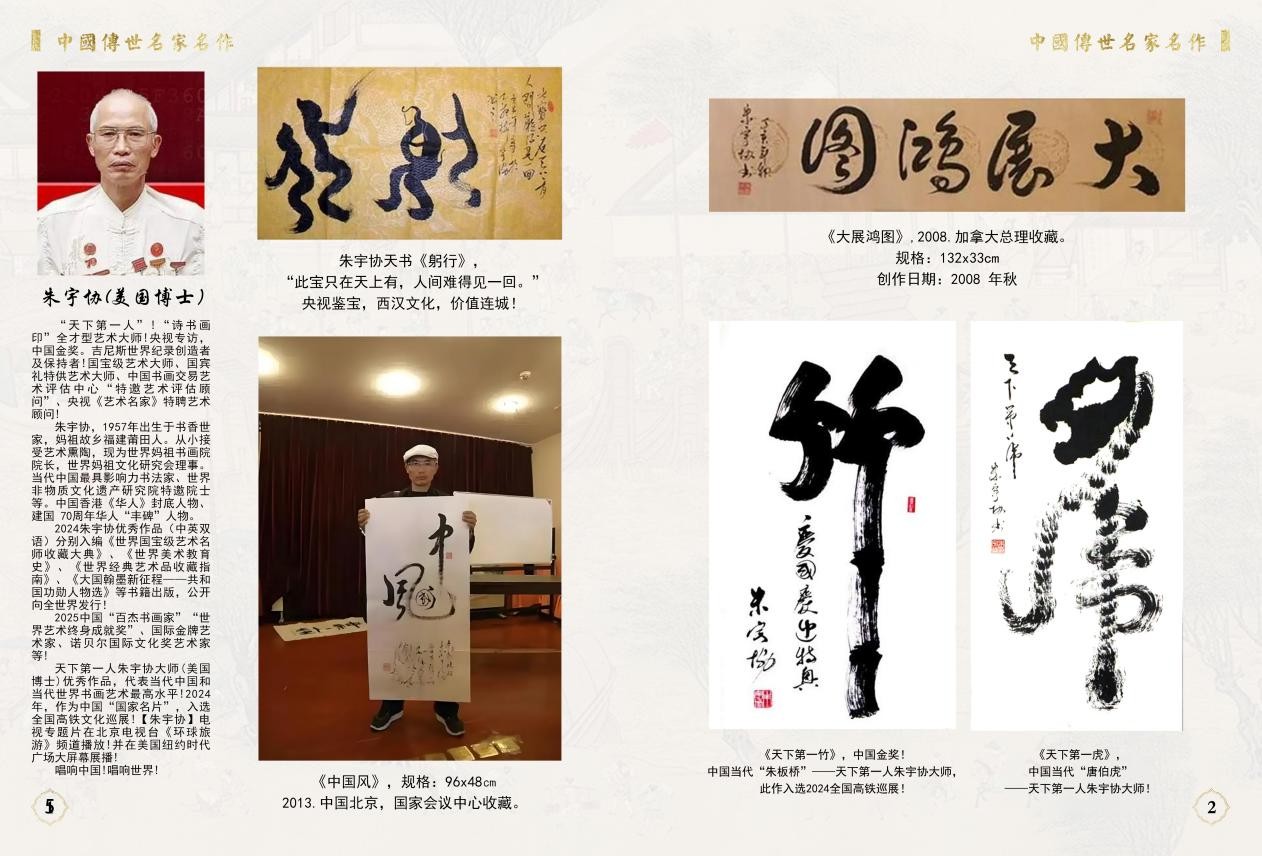 中國傳世名家名作
朱宇协(美国博士)
“天下第一人”！“诗书画
印”全才型艺术大师!央视专访，
中国金奖。吉尼斯世界纪录创造者
及保持者!国宝级艺术大师、国宾
礼特供艺术大师、中国书画交易艺
术评估中心“特邀艺术评估顾
问”、央视《艺术名家》特聘艺术
顾问!
朱宇协，1957年出生于书香世
家，妈祖故乡福建莆田人。从小接
受艺术熏陶，现为世界妈祖书画院
院长，世界妈祖文化研究会理事。
当代中国最具影响力书法家、世界
非物质文化遗产研究院特邀院士
等。中国香港《华人》封底人物、
建国 70周年华人“丰碑”人物。
2024朱宇协优秀作品（中英双
语）分别入编《世界国宝级艺术名
师收藏大典》、《世界美术教育
史》、《世界经典艺术品收藏指
南》、《大国翰墨新征程——共和
国功勋人物选》等书籍出版，公开
向全世界发行!
2025中国“百杰书画家”“世
界艺术终身成就奖”、国际金牌艺
术家、诺贝尔国际文化奖艺术家
等!
天下第一人朱宇协大师(美国
博士)优秀作品，代表当代中国和
当代世界书画艺术最高水平!2024
年，作为中国“国家名片”，入选
全国高铁文化巡展!【朱宇协】电
视专题片在北京电视台《环球旅
游》频道播放!并在美国纽约时代
广场大屏幕展播!
唱响中国!唱响世界!
朱宇协天书《躬行》，
“此宝只在天上有，人间难得见一回。”
央视鉴宝，西汉文化，价值连城!
中
风
《中国风》，规格：96x48cm
2013.中国北京，国家会议中心收藏。
中國傳世名家名作
大展鸿图
朱宇协书
《大展鸿图》,2008.加拿大总理收藏。
规格：132x33cm
创作日期：2008 年秋
竹
朱宇协
《天下第一竹》，中国金奖!
中国当代“朱板桥”——天下第一人朱宇协大师，
此作入选2024全国高铁巡展!
虎
天下第一虎
朱宇协书
《天下第一虎》，
中国当代“唐伯虎”
——天下第一人朱宇协大师!
2